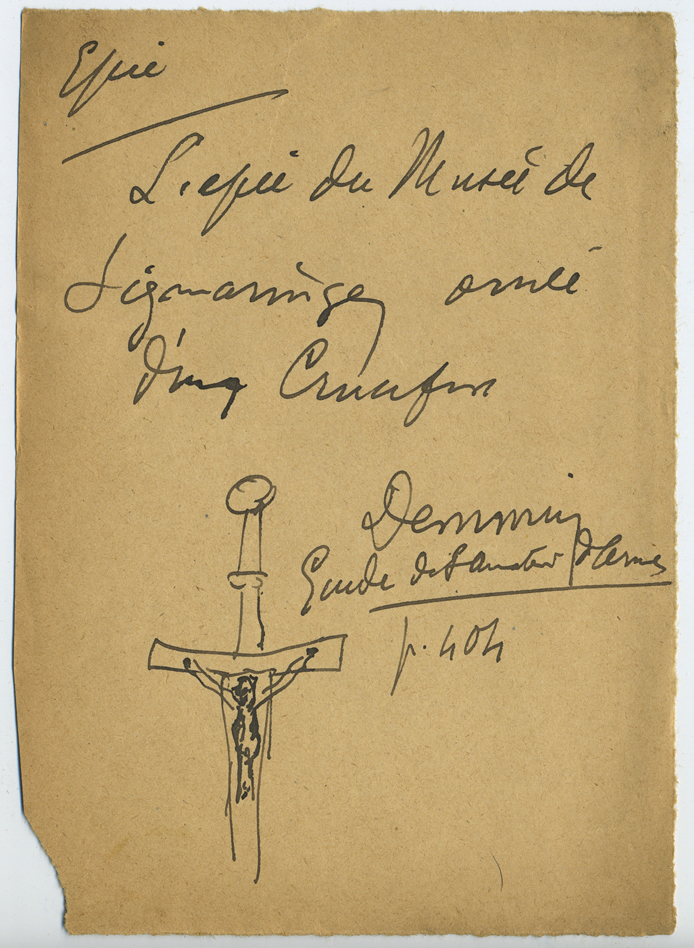 Epée
L'epée du Musée de
Sigmaringen ornée
d'un Crucifix
Demmin
Guide de l'Amateur d'Armes
p. 404